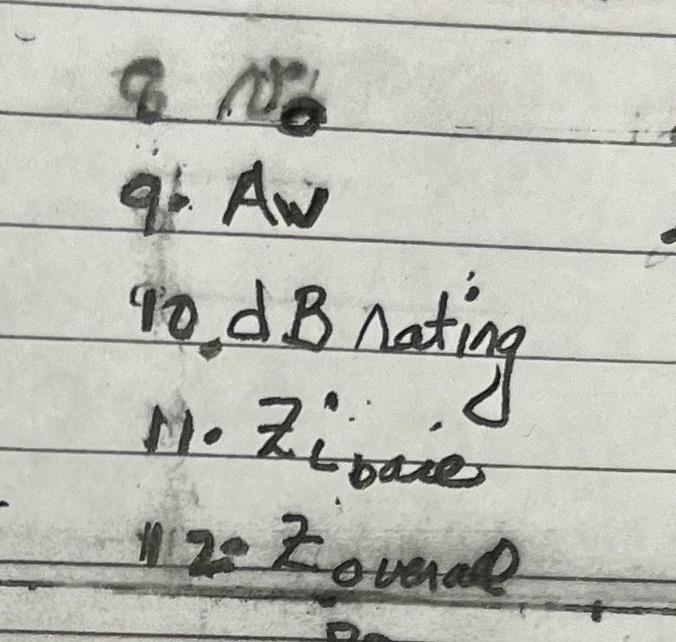 8 No
9. Aw
10. dB rating
11. Zi base
12. Z overall